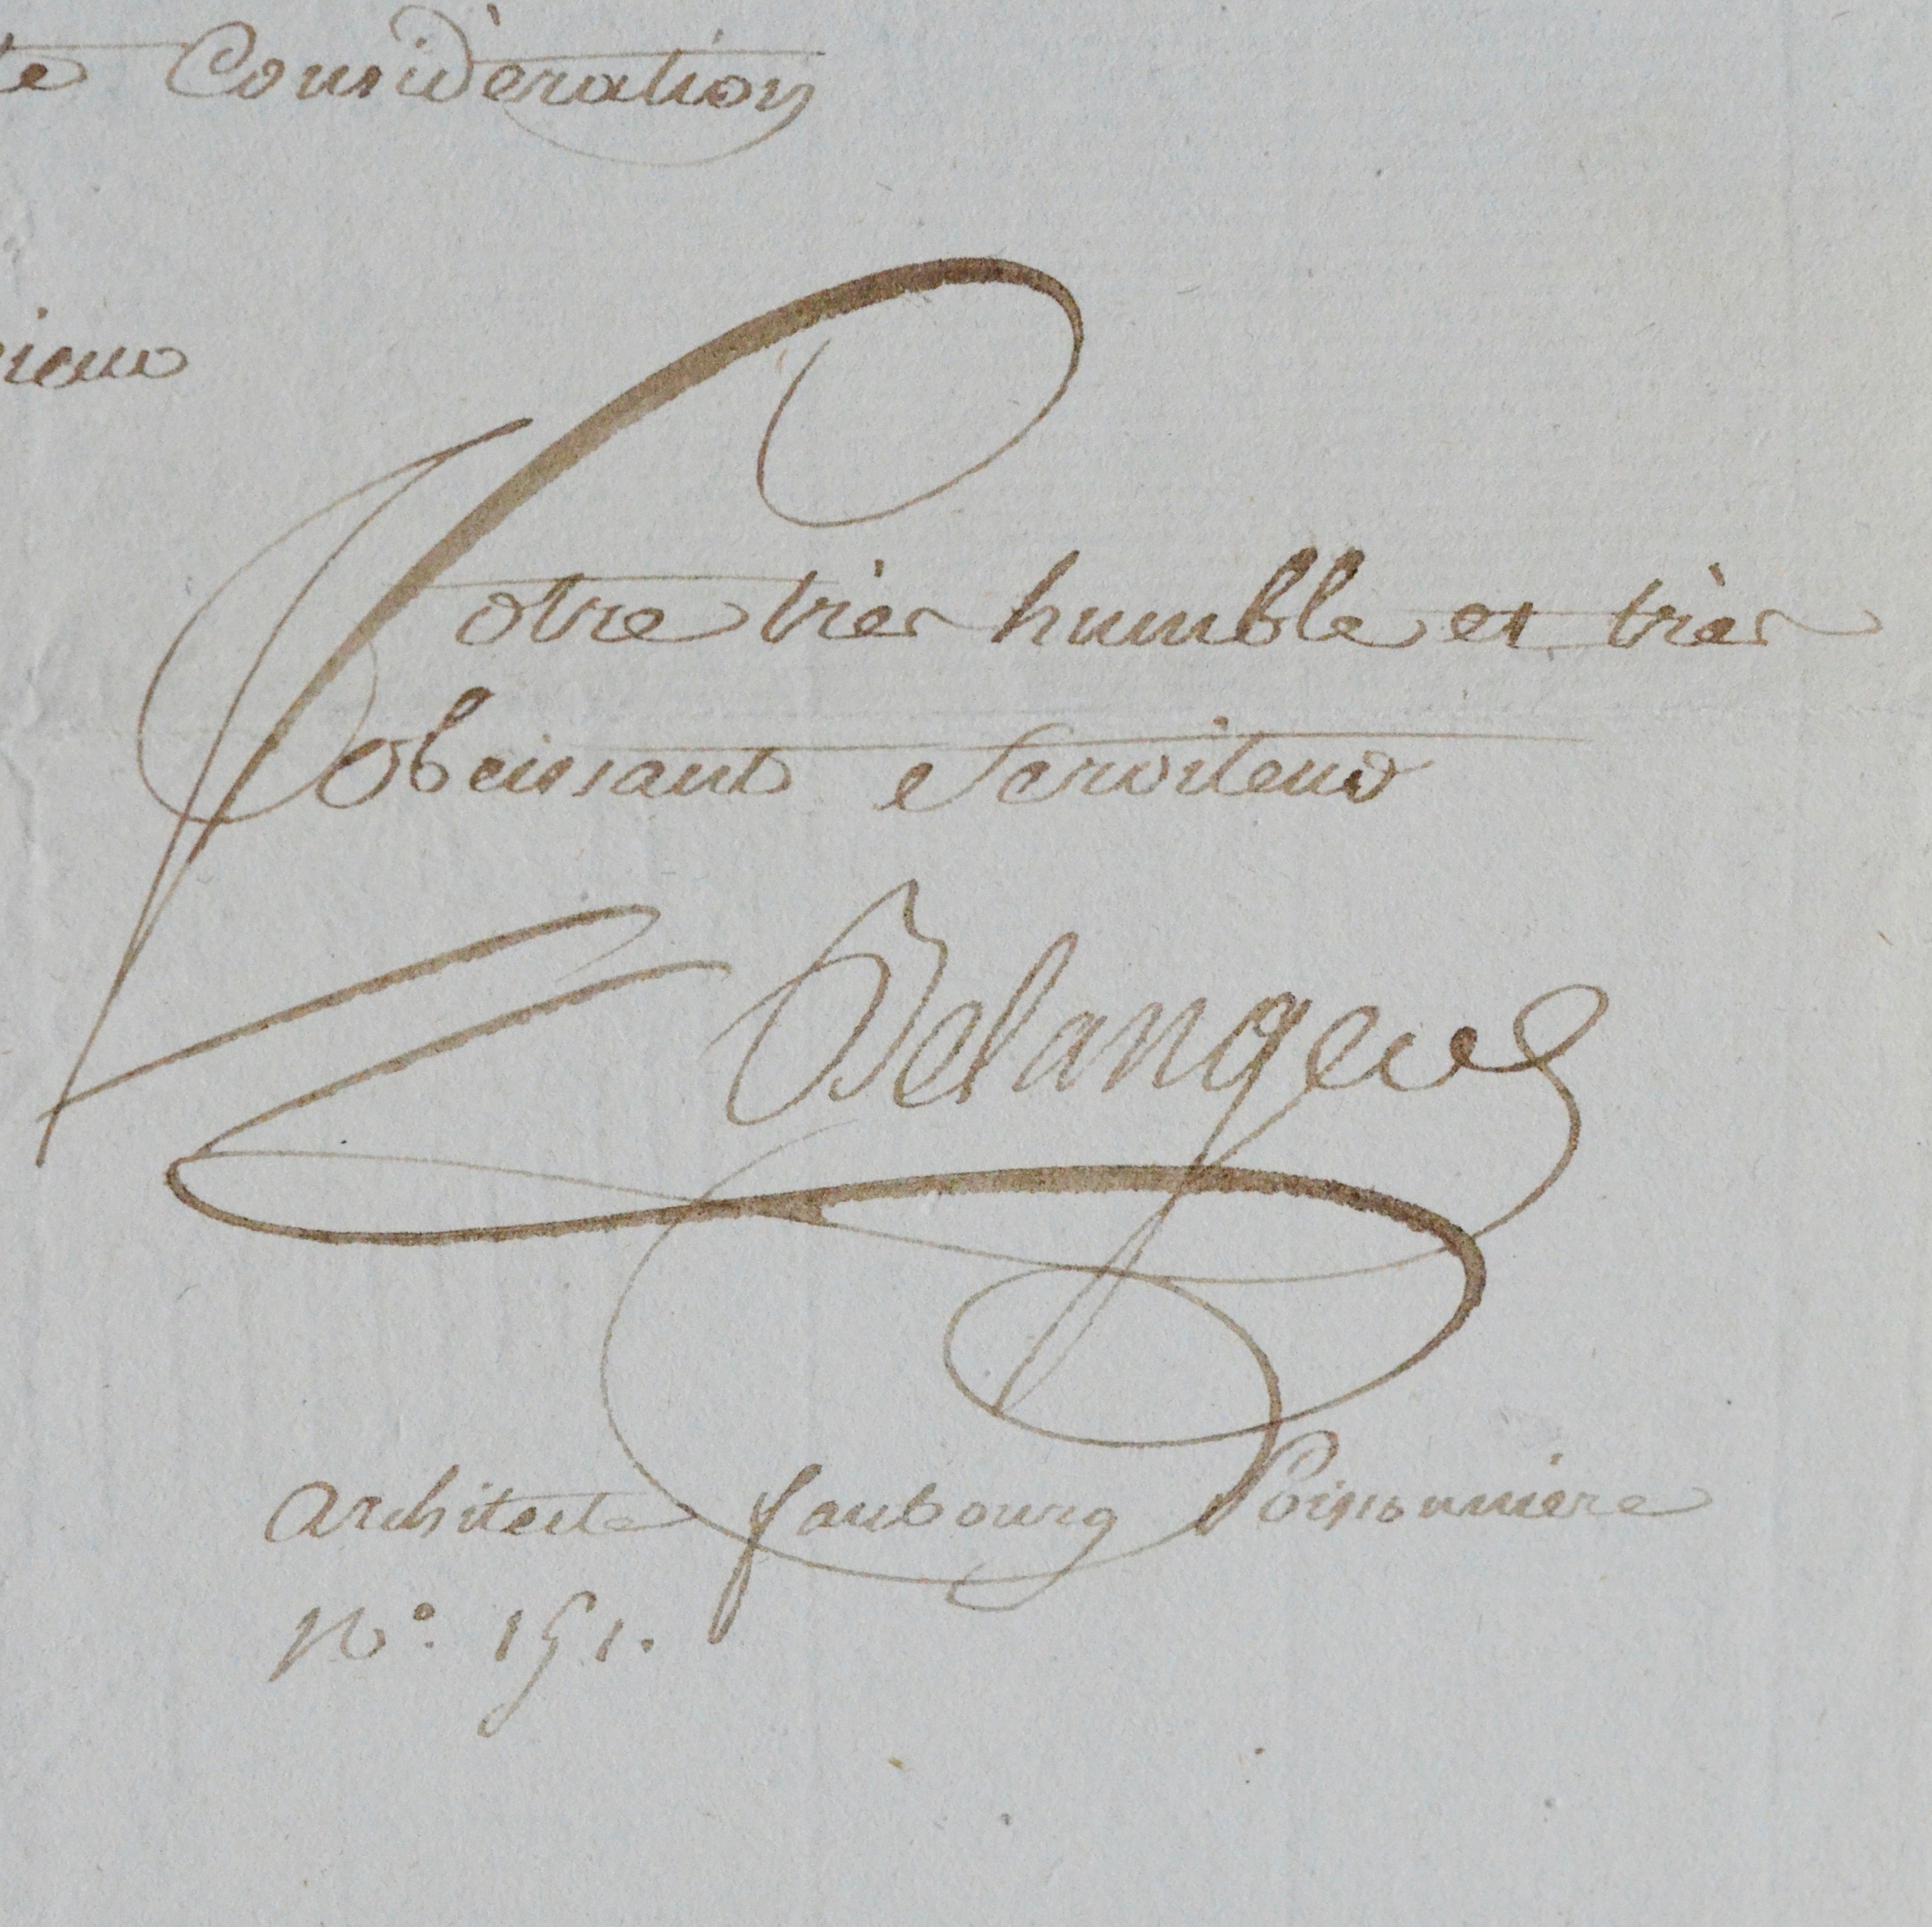 te Consideration
rieur
Votre très humble et très
obeissant Serviteur
Belanger
architecte faubourg Poissonniere
N°. 151.